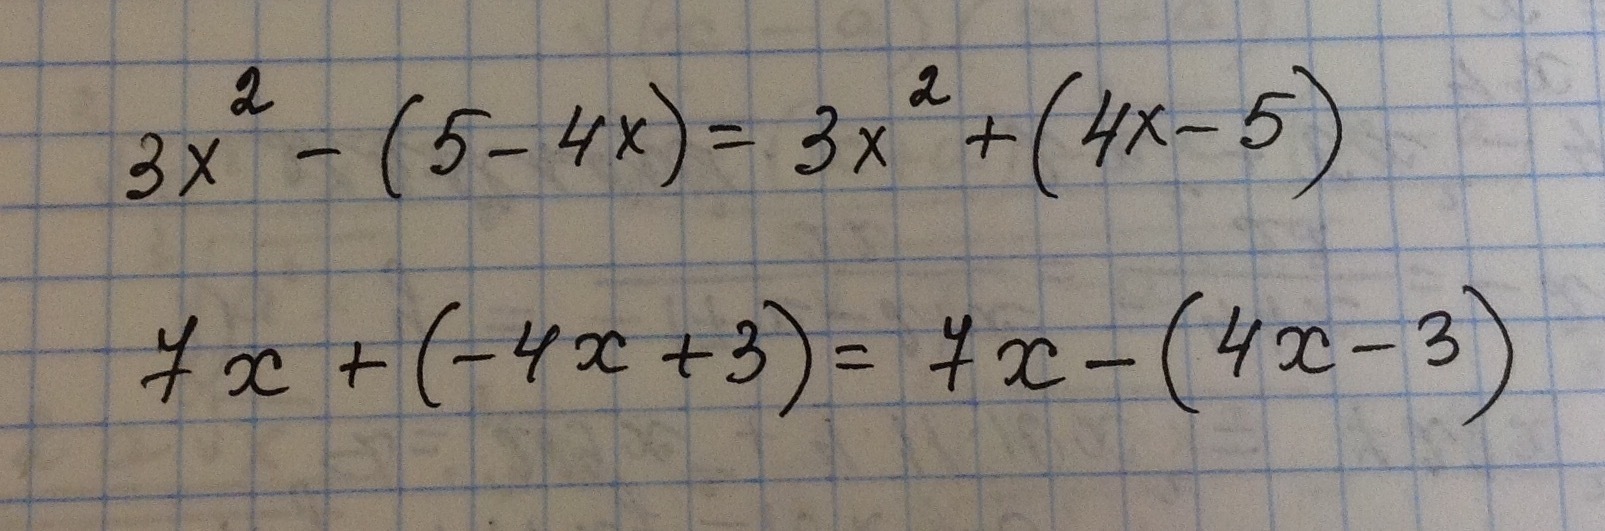 3x² - (5 - 4x) = 3x² + (4x - 5)
7x + (-4x + 3) = 7x - (4x - 3)